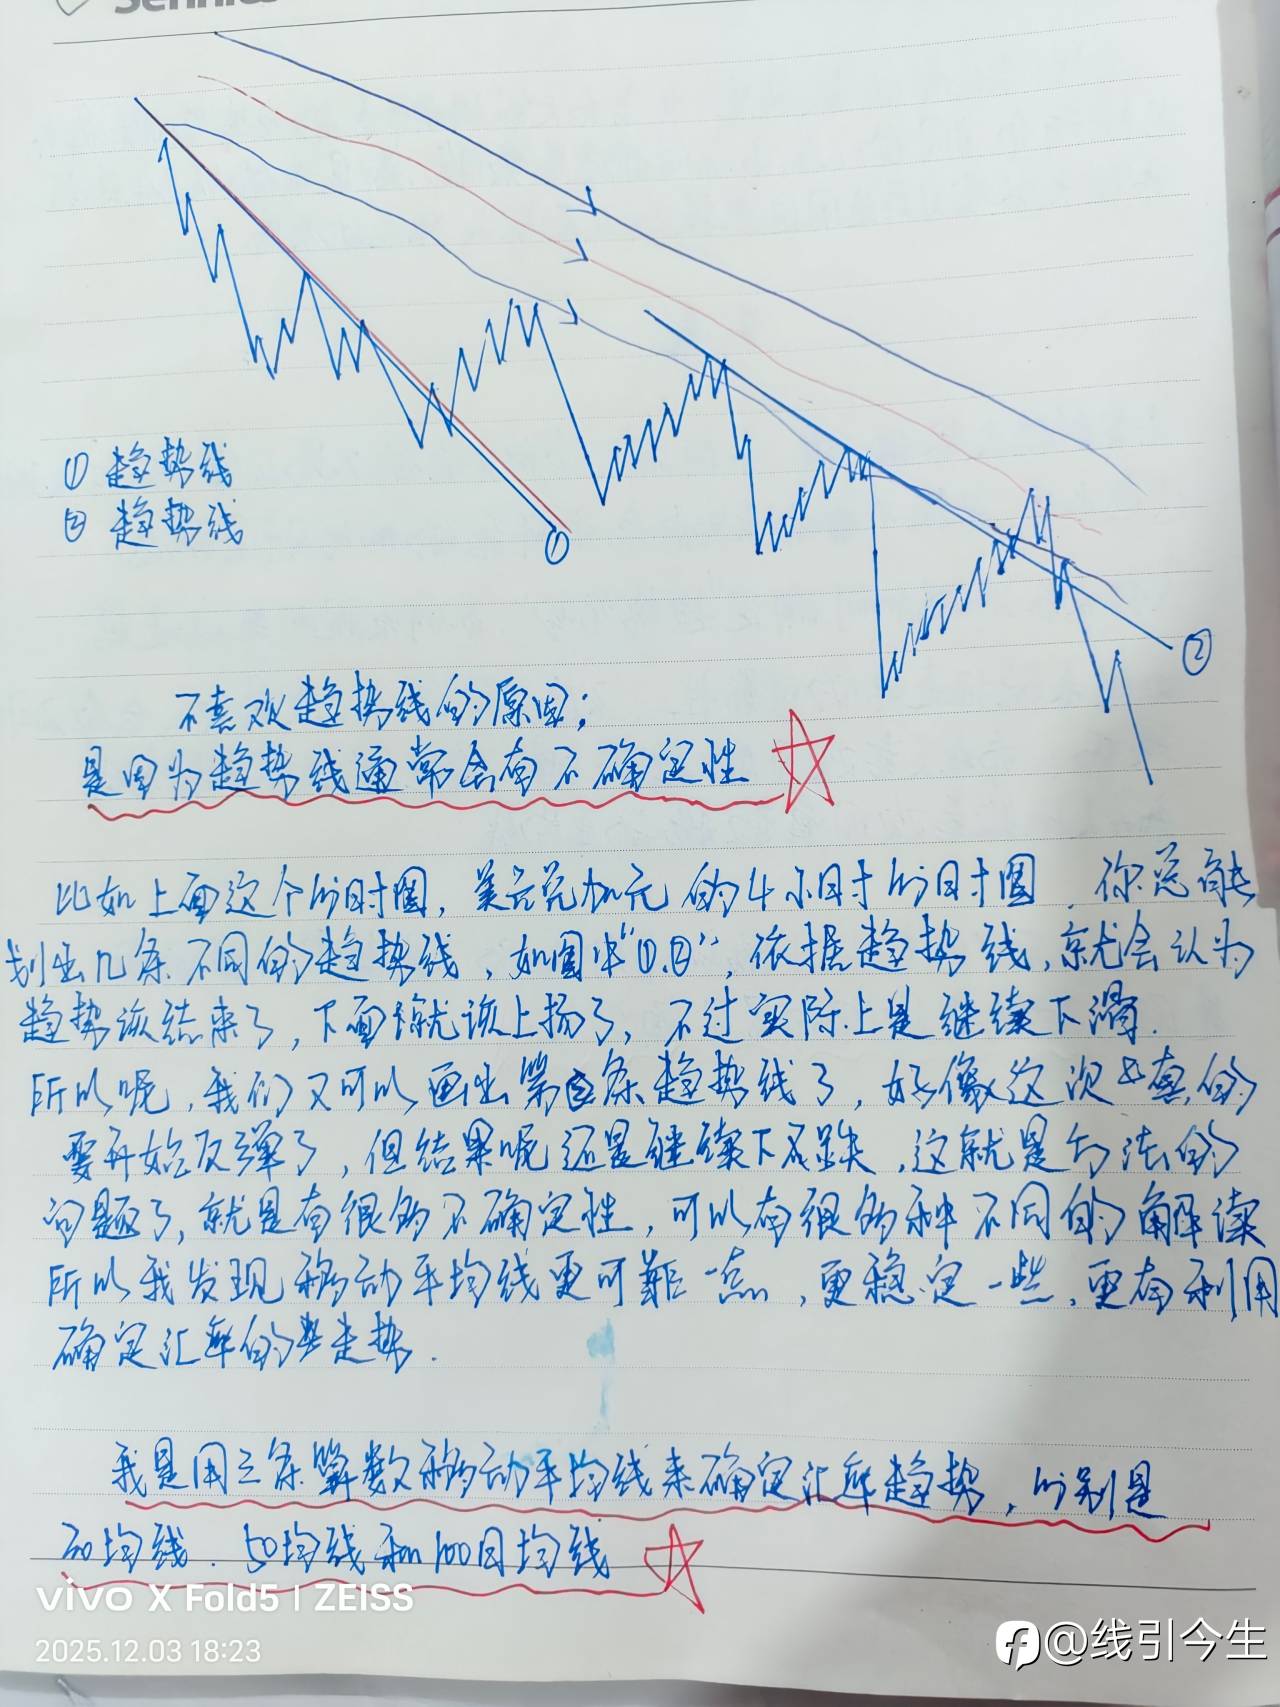 ①
① 趋势线
② 趋势线
②
不喜欢趋势线的原因;
是因为趋势线通常会有不确定性
比如上面这个分时图,美元兑加元的4小时分时图,你总能
划出几条不同的趋势线,如图中"①.②",依据趋势线,就会认为
趋势该结束了,下面就该上扬了,不过实际上是继续下滑.
所以呢,我们又可以画出第②条趋势线了,好像这次是真的
要开始反弹了,但结果呢还是继续下跌,这就是方法的
问题了,就是有很多不确定性,可以有很多种不同的解读
所以我发现移动平均线更可靠一点,更稳定一些,更有利用
确定汇率的走势.
我是用三条算数移动平均线来确定汇率趋势,分别是
20均线.50均线和100日均线
vivo X Fold5 | ZEISS
2025.12.03 18:23
@线引今生